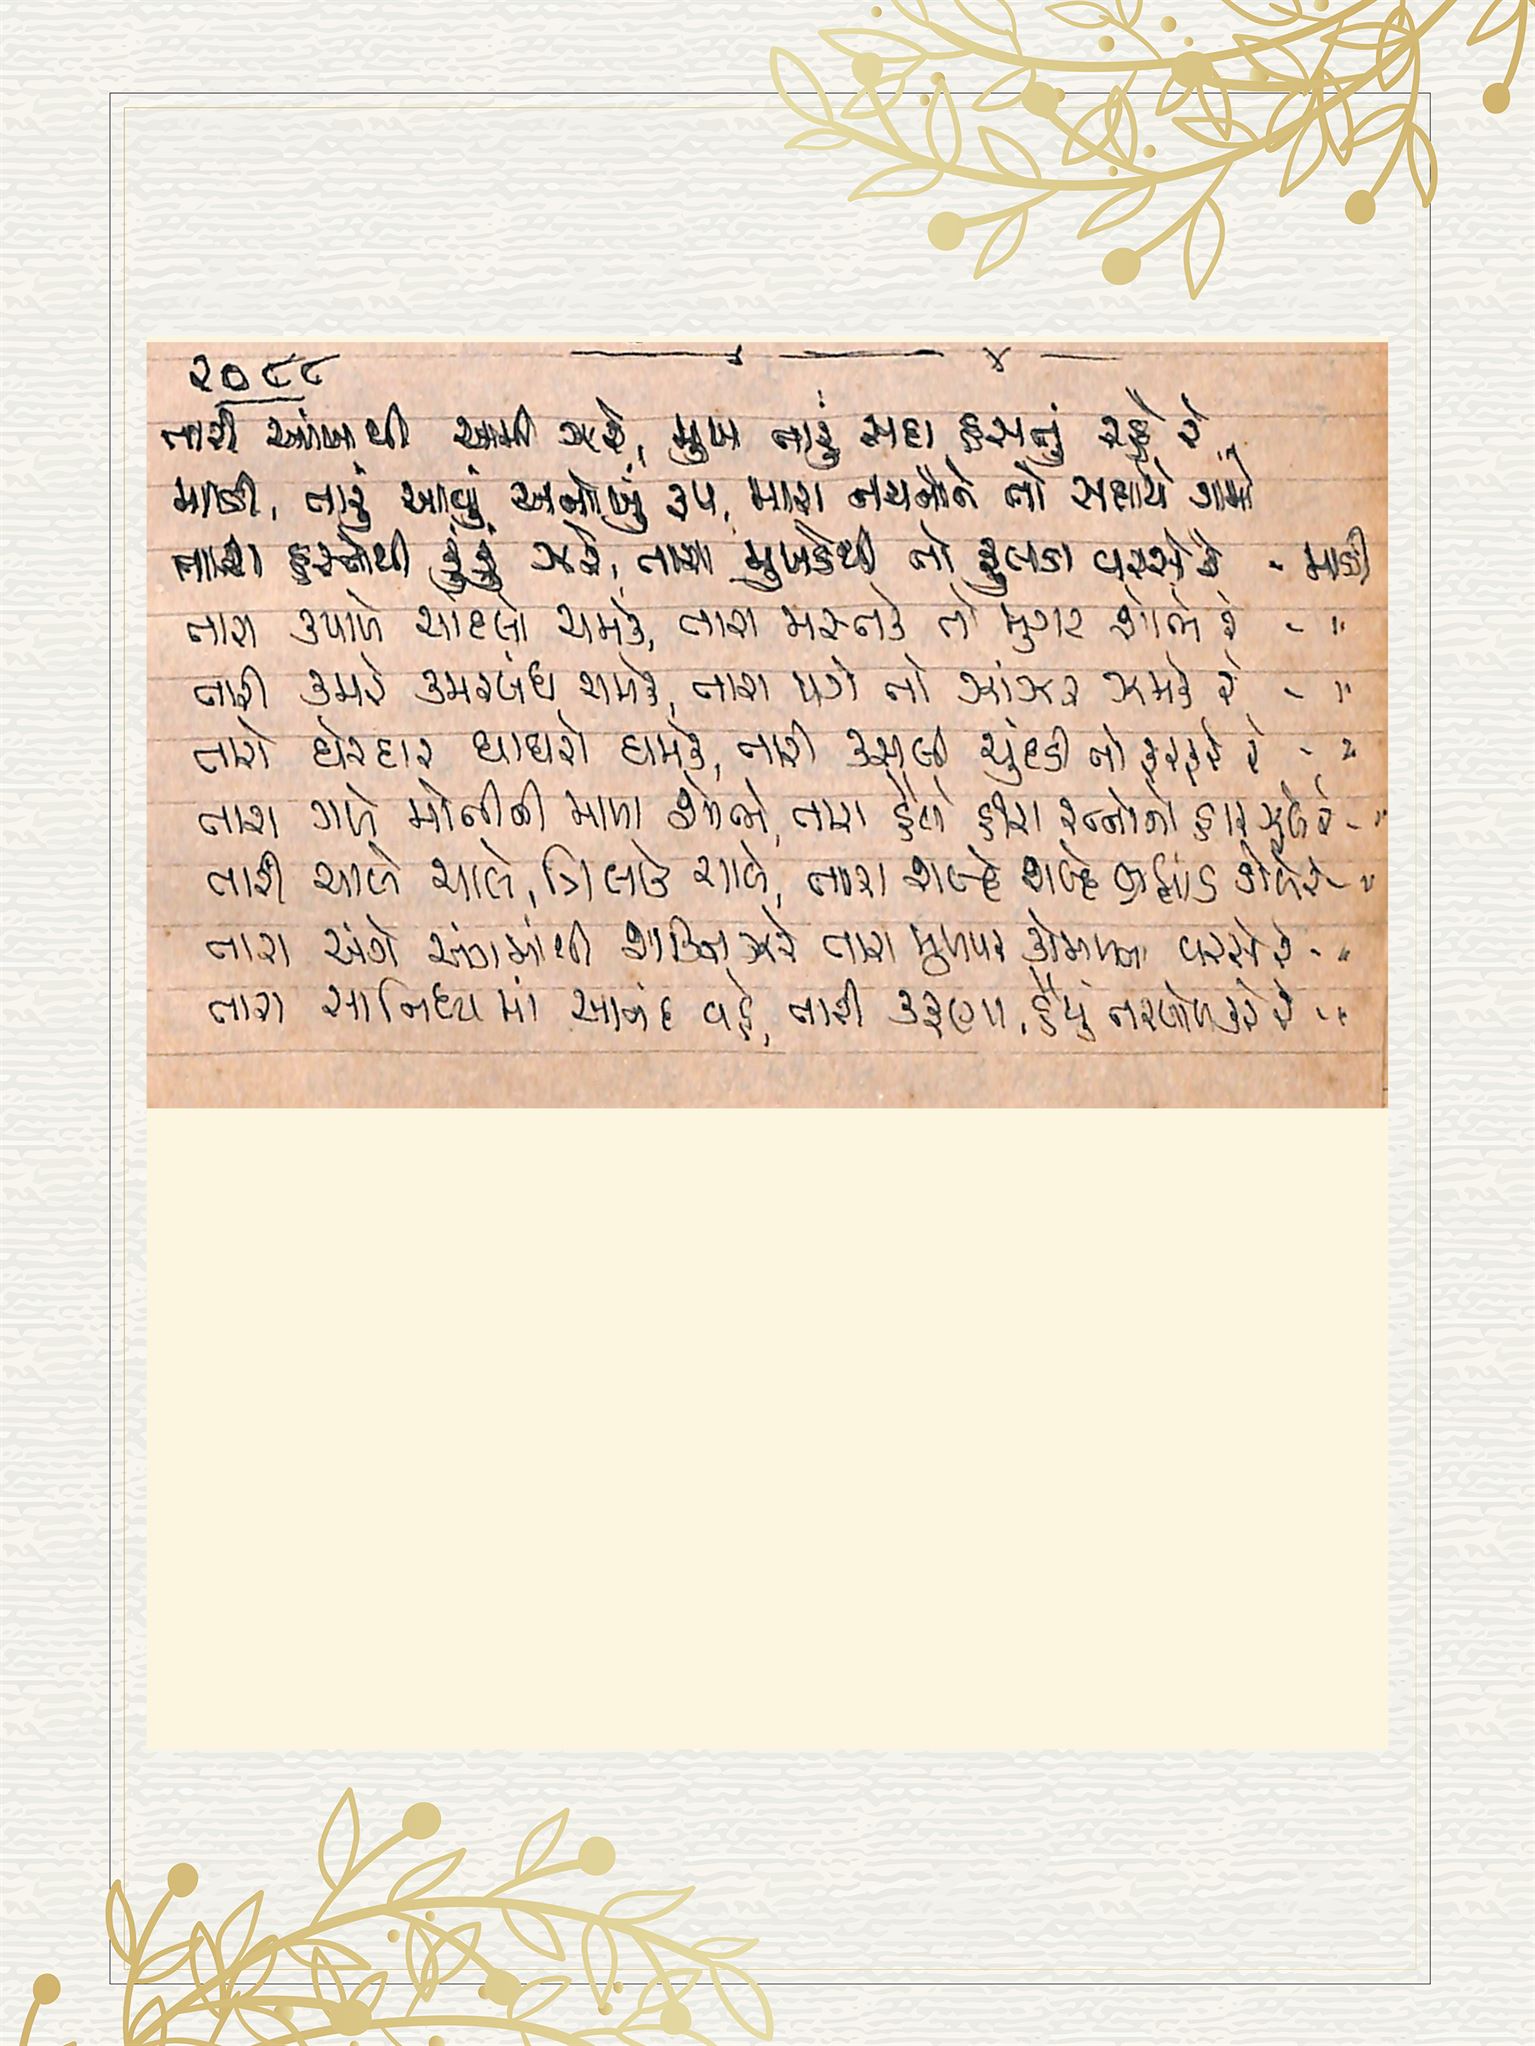 ૨૦૮૮
તારી આંખથી અમી ઝરે, મુખ તારું સદા હસતું રહે રે
માડી, તારું આવું અનોખું રૂપ, મારા નયનોને તો સદાયે ગમે
તારા હસ્તેથી કુંકું ઝરે, તારા મુખડેથી તો ફુલડા વરસે રે - માડી
તારા કપાળે ચાંદલો ચમકે, તારા મસ્તકે તો મુગટ શોભે રે - "
તારી કમરે કમરબંધ ચમકે, તારા પગે તો ઝાંઝર ઝમકે રે - "
તારો ઘેરદાર ઘાઘરો ઘમકે, તારી કસુંબી ચુંદડી તો ફરફરે રે - "
તારા ગળે મોતીની માળા શોભે, તારા હૈયે હીરા રત્નોનો હાર ઝુલે રે - "
તારી ચાલે ચાલે, ગાજે, તારા શબ્દે શબ્દે બ્રહ્માંડ ડોલે રે - "
તારા અંગે અંગમાંથી શક્તિ ઝરે તારા મુખપર કોમળતા વરસે રે - "
તારા સાનિધ્યમાં આનંદ વહે, તારી કરૂણા, હૈયું તરબોળ કરે રે - "